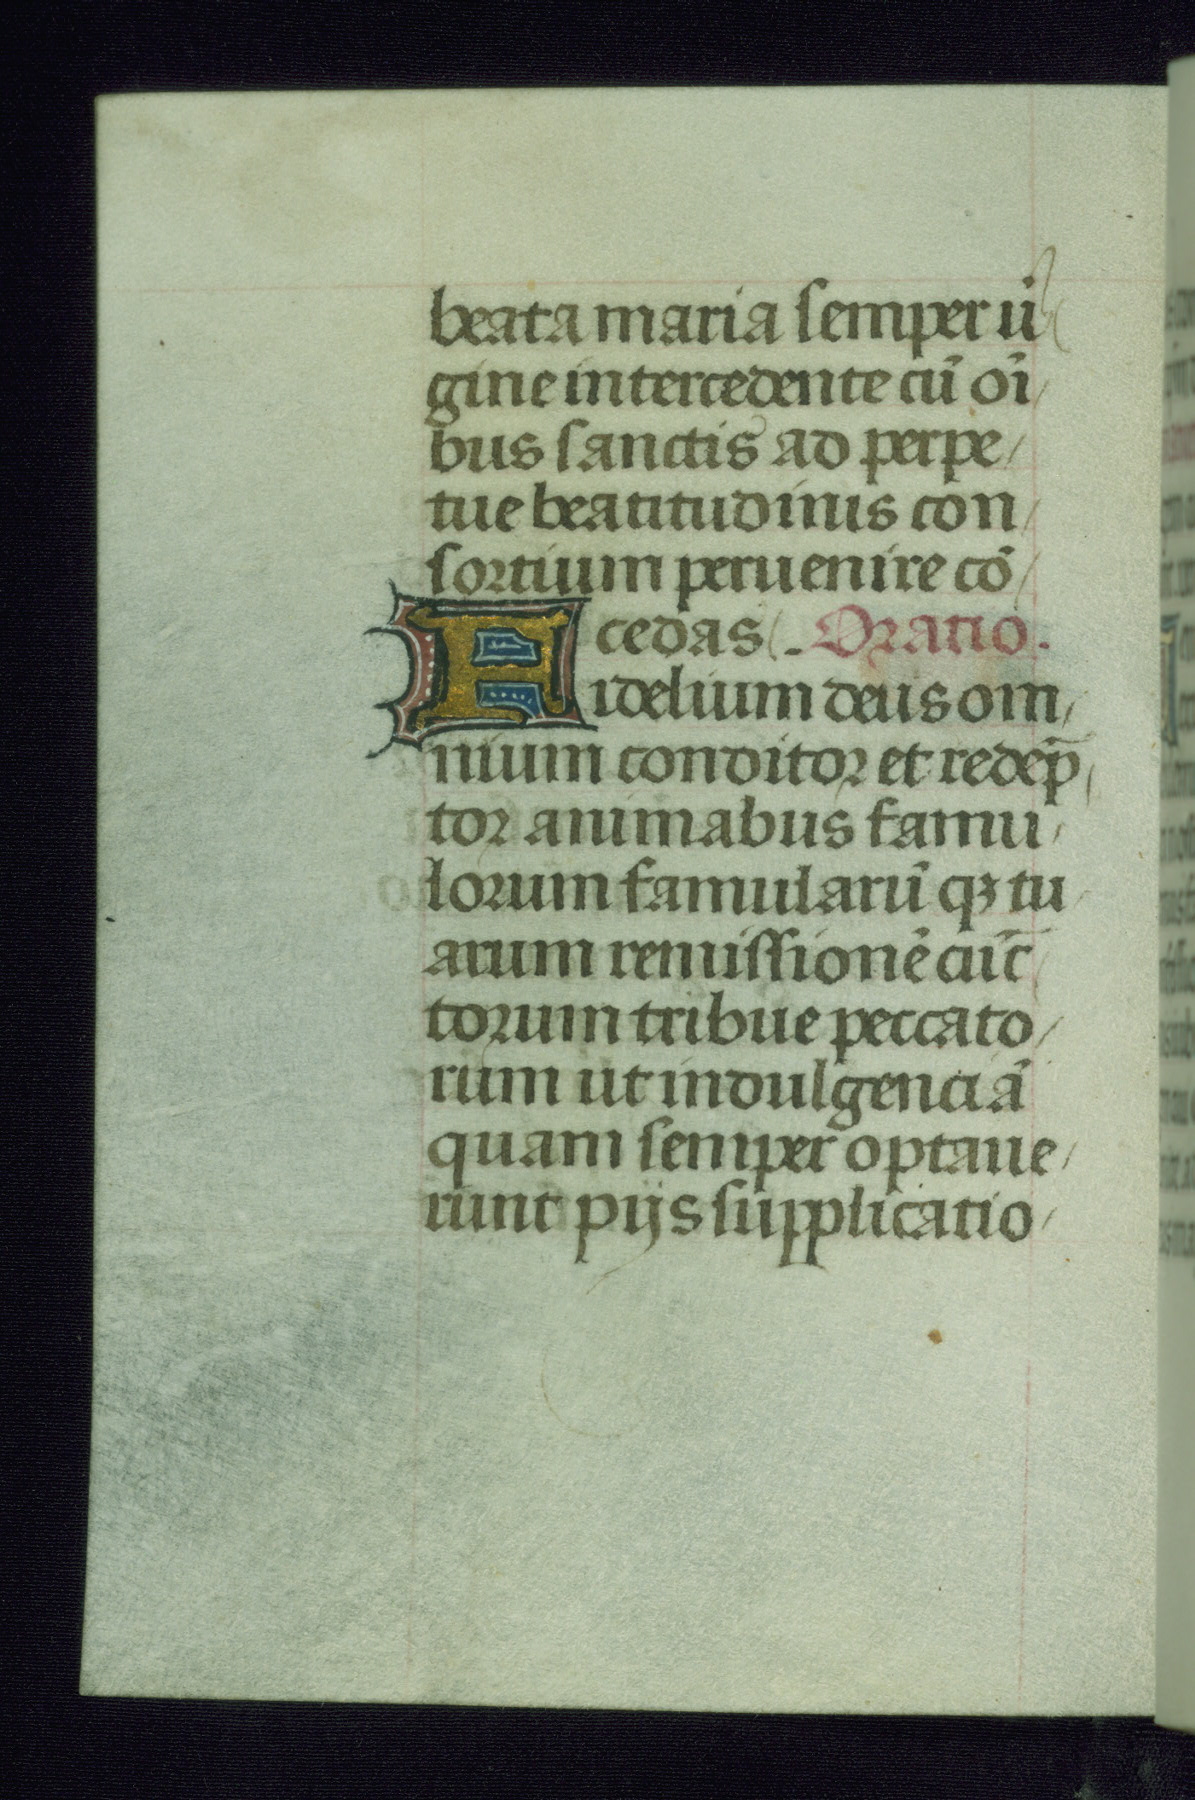 beata maria semper ui̅
gine intercedente cu̅ oi̅
bus sanctis ad perpe/
tue beatitudinis con/
sortium peruenire co̅/
cedas. Oratio.
Fidelium deus om/
nium conditor et redep̅/
tor animabus famu/
lorum famularu̅ qꝫ tu/
arum remissione̅ cu̅c/
torum tribue peccato/
rum ut indulgencia̅
quam semper optaue/
runt pijs supplicatio/